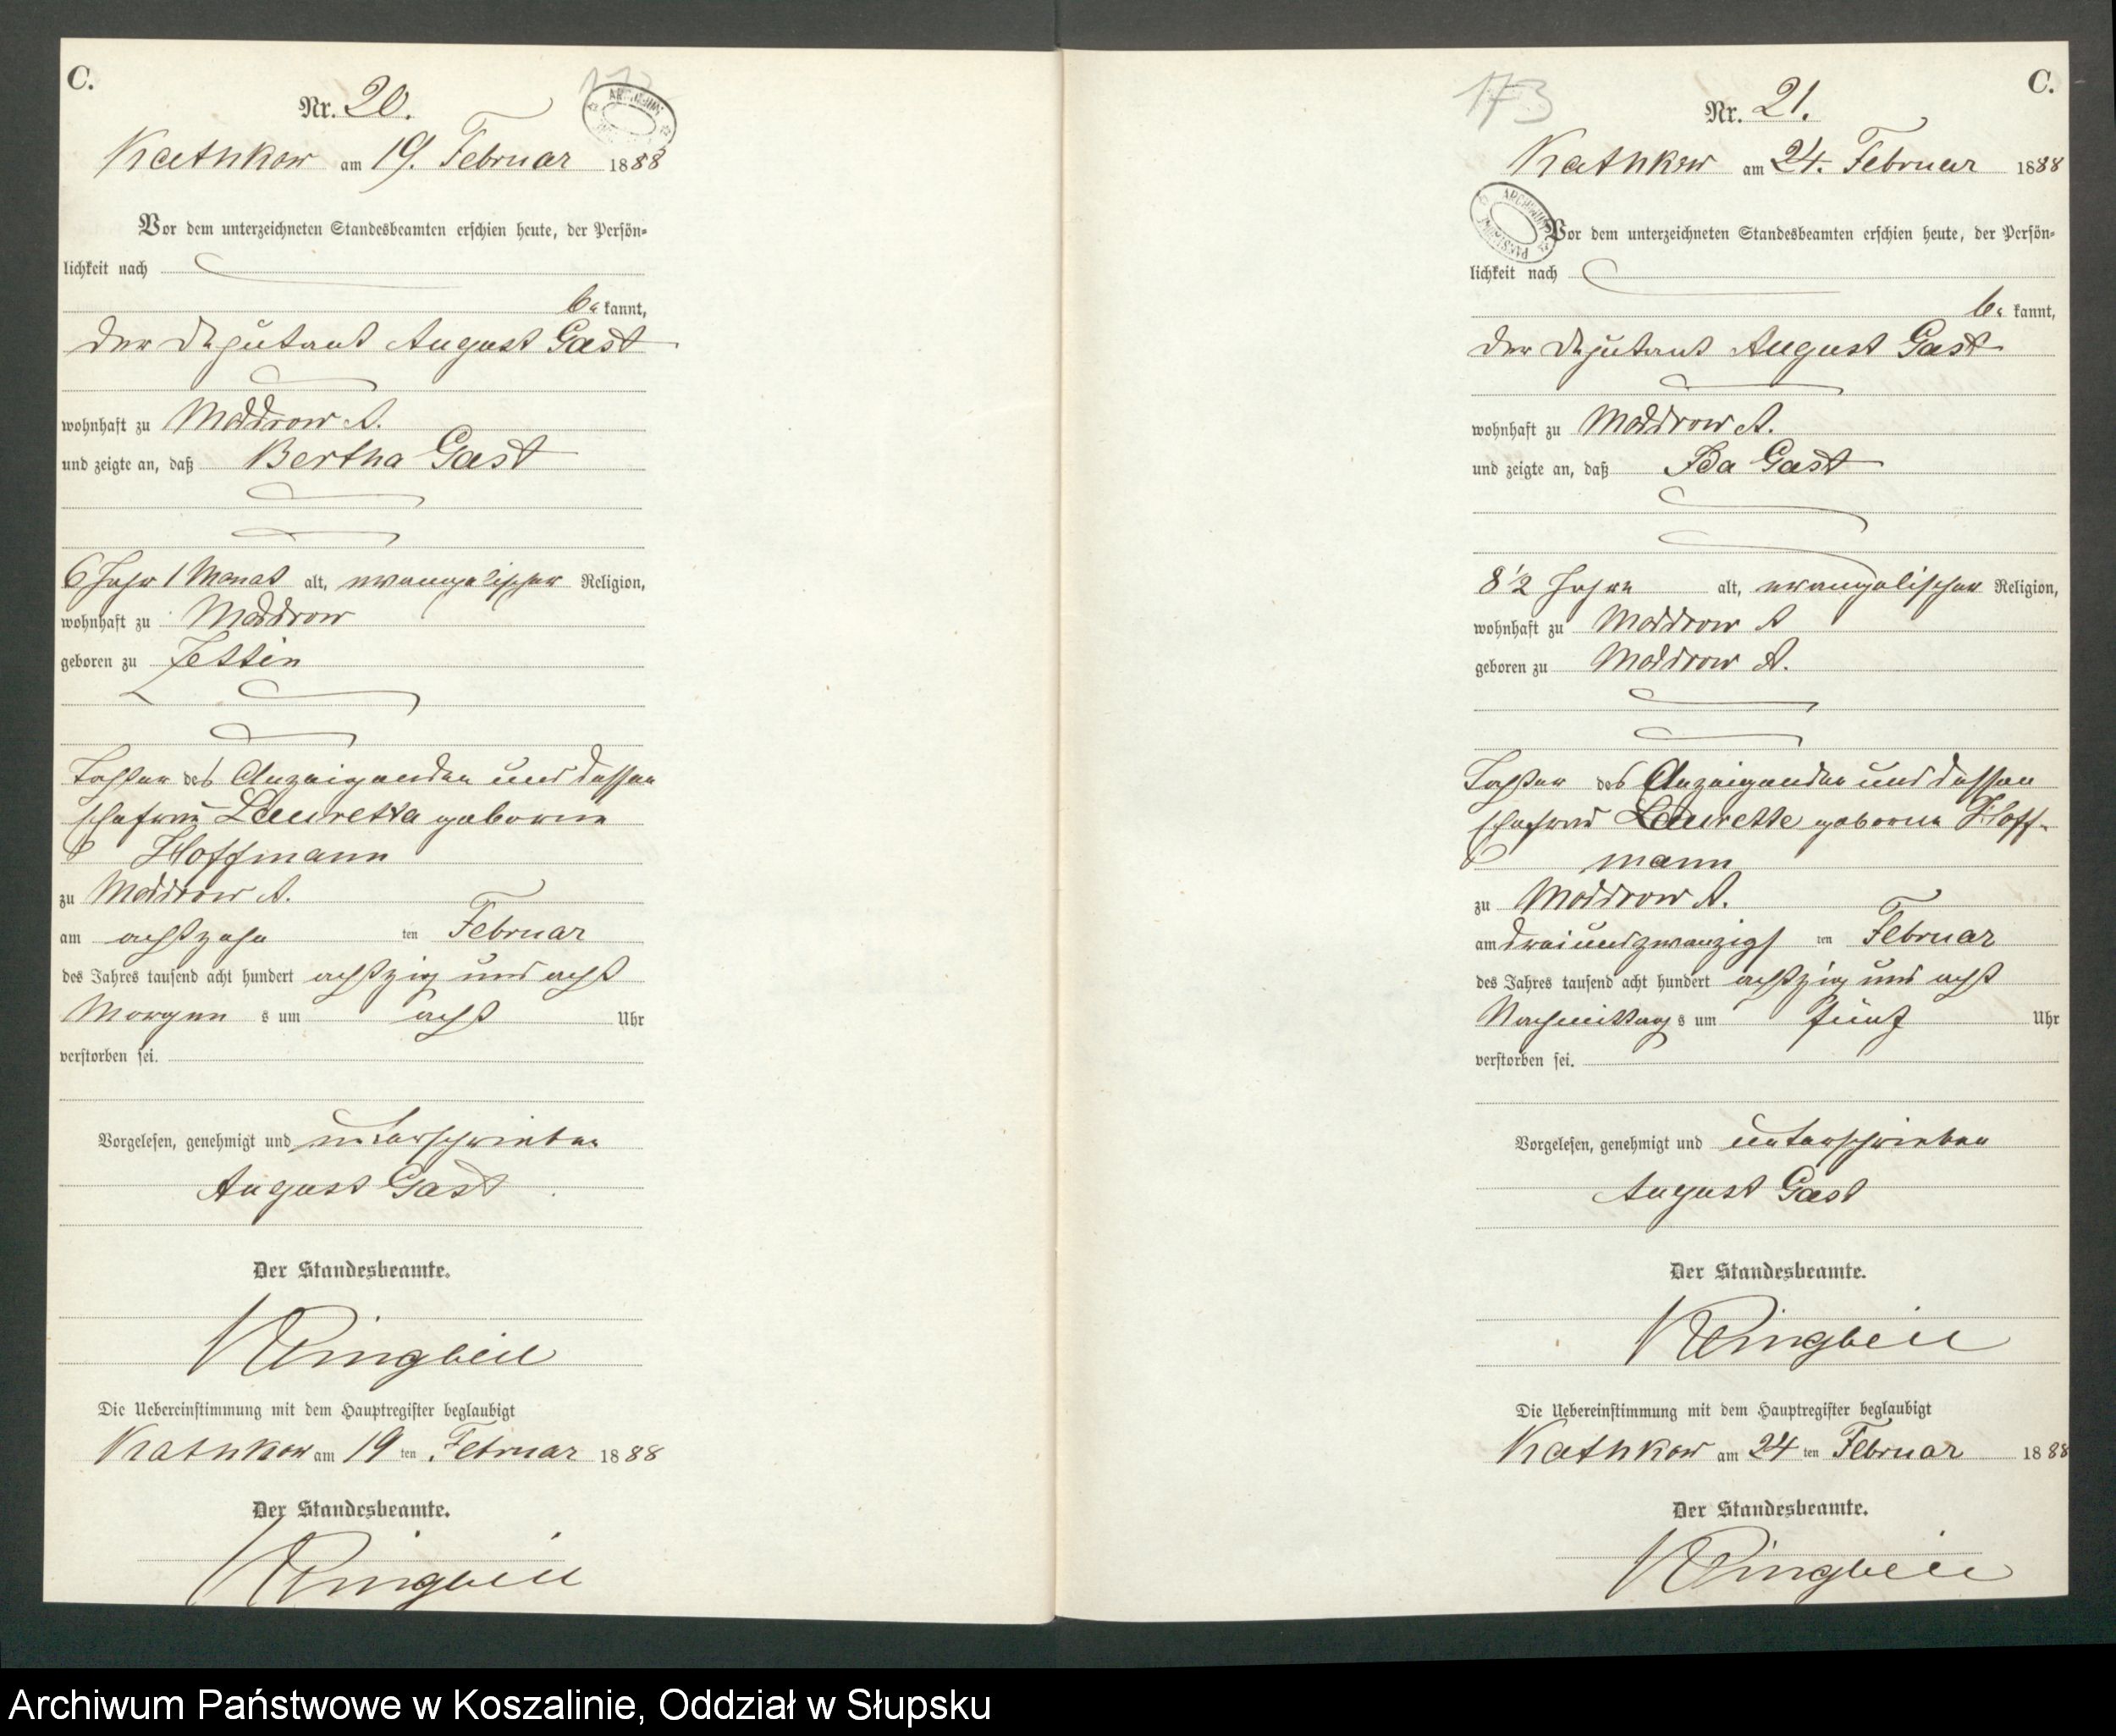 C.
Nr. 20.
Kathkow am 19. Februar 1888
Vor dem unterzeichneten Standesbeamten erschien heute, der Persön-
lichkeit nach
be kannt,
der Deputant August Gast
wohnhaft zu Moddrow A.
und zeigte an, daß Bertha Gast
6 Jahr 1 Monat alt, evangelischer Religion,
wohnhaft zu Moddrow
geboren zu Jettin
Tochter des Anzeigenden und dessen
Ehefrau Lauretta geborene
Hoffmann
zu Moddrow A.
am achtzehn ten Februar
des Jahres tausend acht hundert achtzig und acht
Morgen s um acht Uhr
verstorben sei.
Vorgelesen, genehmigt und unterschrieben
August Gast
Der Standesbeamte.
Die Uebereinstimmung mit dem Hauptregister beglaubigt
Kathkow am 19 ten Februar 1888
Der Standesbeamte.
173
C.
Nr. 21.
Kathkow am 24. Februar 1888
Vor dem unterzeichneten Standesbeamten erschien heute, der Persön-
lichkeit nach
be kannt,
der Deputant August Gast
wohnhaft zu Moddrow A.
und zeigte an, daß Ida Gast
8 1/2 Jahre alt, evangelischer Religion,
wohnhaft zu Moddrow A
geboren zu Moddrow A.
Tochter des Anzeigenden und dessen
Ehefrau Laurette geborene Hoff-
mann
zu Moddrow A.
am dreiundzwanzigs ten Februar
des Jahres tausend acht hundert achtzig und acht
Nachmittag s um fünf Uhr
verstorben sei.
Vorgelesen, genehmigt und unterschrieben
August Gast
Der Standesbeamte.
Die Uebereinstimmung mit dem Hauptregister beglaubigt
Kathkow am 24 ten Februar 1888
Der Standesbeamte.
Archiwum Państwowe w Koszalinie, Oddział w Słupsku